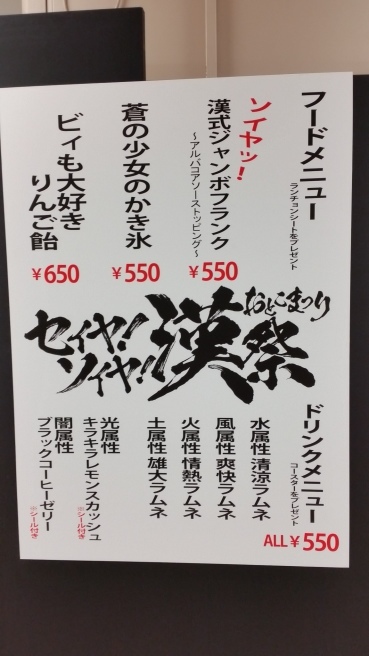 フードメニュー
ランチョンシートをプレゼント
ソイヤッ!
漢式ジャンボフランク
~アルバコアソーストッピング~
¥550
蒼の少女のかき氷
¥550
ビィも大好き
りんご飴
¥650
おとこまつり
漢祭
セイヤ!
ソイヤ!!
ドリンクメニュー
コースターをプレゼント
ALL¥550
水属性 清涼ラムネ
風属性 爽快ラムネ
火属性 情熱ラムネ
土属性 雄大ラムネ
光属性
キラキラレモンスカッシュ
※シール付き
闇属性
ブラックコーヒーゼリー
※シール付き